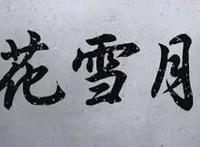 花雪月